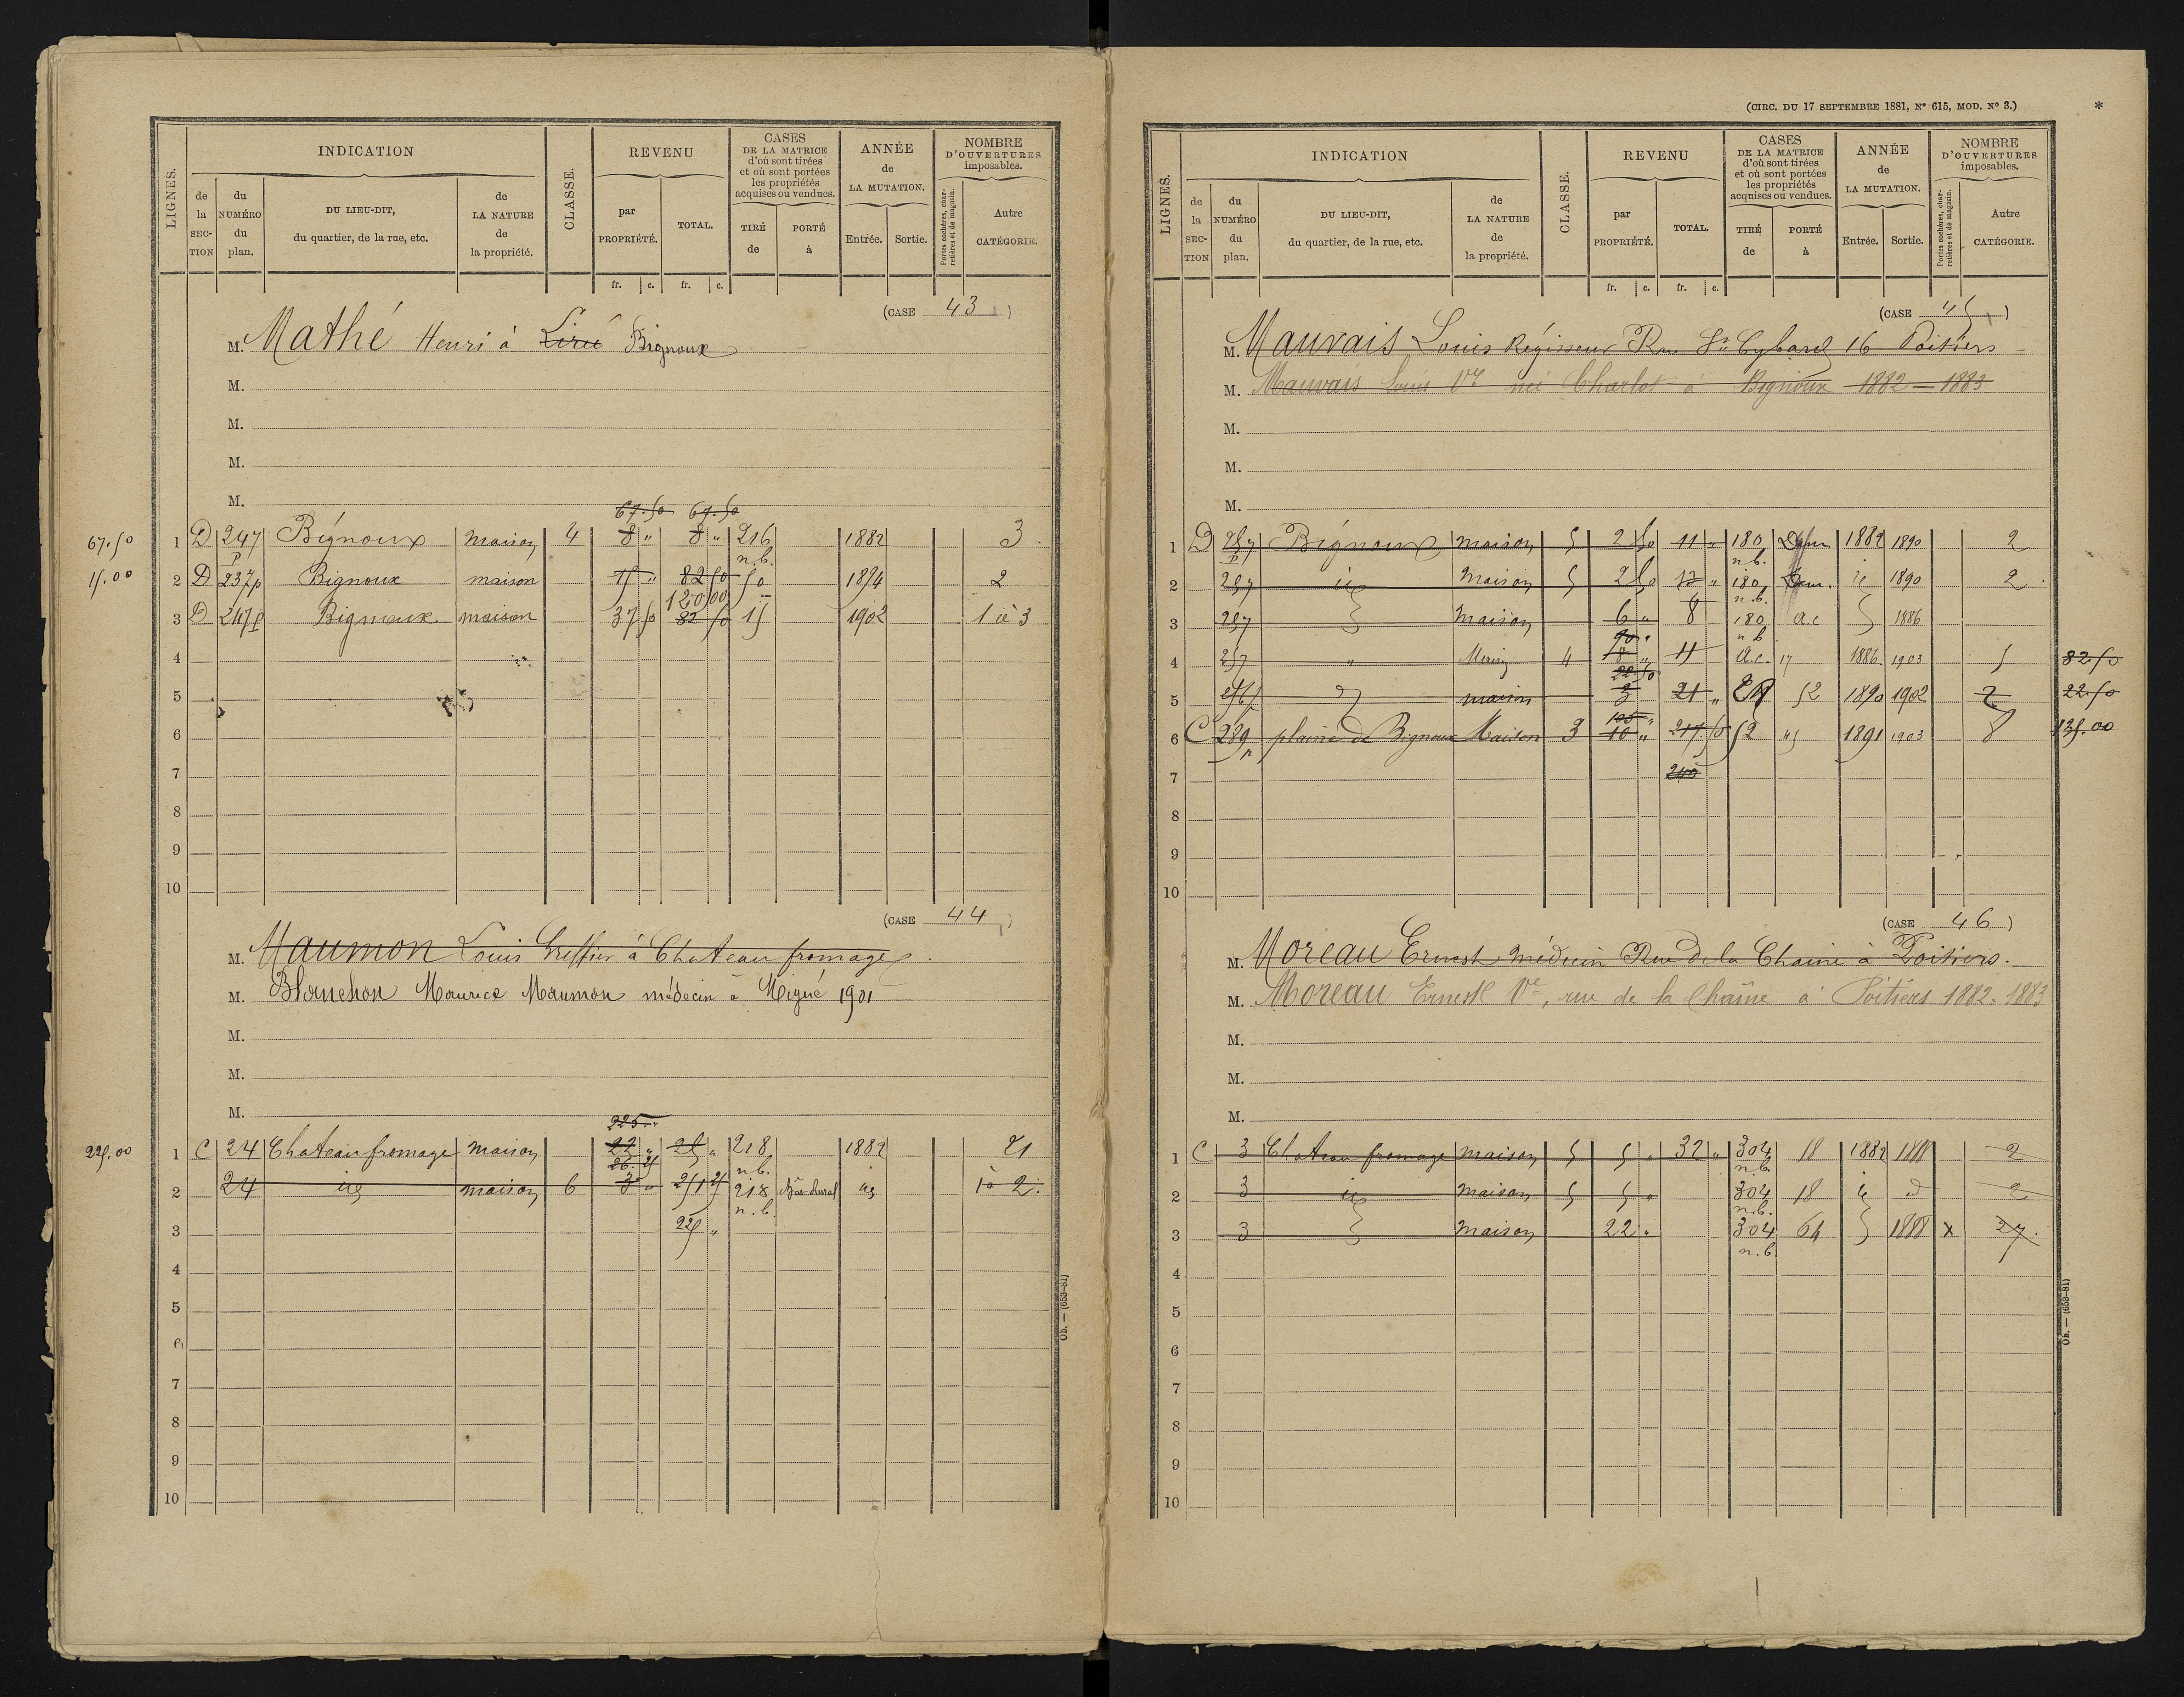 LIGNES.
INDICATION
de la SECTION
du NUMÉRO du plan.
DU LIEU-DIT, du quartier, de la rue, etc.
de LA NATURE de la propriété.
CLASSE.
REVENU
par PROPRIÉTÉ.
TOTAL.
fr. c. fr. c.
CASES DE LA MATRICE d'où sont tirées et où sont portées les propriétés acquises ou vendues.
TIRÉ de
PORTÉ à
ANNÉE de LA MUTATION.
Entrée. Sortie.
NOMBRE D'OUVERTURES imposables.
Portes cochères, charretières et de magasin.
Autre CATÉGORIE.
(CASE 43)
M. Mathé Henri à Liré Bignoux
M.
M.
M.
M.
67.50 67.50
67.50 1 D 247 p Bignoux maison 4 8 " 8 " 216 n.b. 1882 3
15.00 2 D 237p Bignoux maison 15 " 82 50 50 1894 2
120 00
3 D 247p Bignoux maison 37 50 82 50 15 1902 1 à 3
4
5
6
7
8
9
10
(CASE 44)
M. Maumon Louis Greffier à Chateau fromage
M. Blanchon Maurice Maumon médecin à Migné 1901
M.
M.
M.
225 "
225.00 1 C 24 Chateau fromage maison 22 " 25 " 218 n.b. 1882 21
26.25
2 24 id maison 6 3 " 251 25 218 n.b. id 1 à 2.
3 225 "
4
5
6
7
8
9
10
Ob. — (653-81)
(CIRC. DU 17 SEPTEMBRE 1881, N° 615, MOD. N° 3.)
*
LIGNES.
INDICATION
de la SECTION
du NUMÉRO du plan.
DU LIEU-DIT, du quartier, de la rue, etc.
de LA NATURE de la propriété.
CLASSE.
REVENU
par PROPRIÉTÉ.
TOTAL.
fr. c. fr. c.
CASES DE LA MATRICE d'où sont tirées et où sont portées les propriétés acquises ou vendues.
TIRÉ de
PORTÉ à
ANNÉE de LA MUTATION.
Entrée. Sortie.
NOMBRE D'OUVERTURES imposables.
Portes cochères, charretières et de magasin.
Autre CATÉGORIE.
(CASE 45)
M. Mauvais Louis Régisseur Rue St Cybard 16 Poitiers
M. Mauvais Louis Ve née Charlot à Bignoux 1882 = 1883
M.
M.
M.
1 D 257 p Bignoux maison 5 2 50 11 " 180 n.b. 1882 1890 2
2 257 id maison 5 2 50 13 " 180 n.b. id 1890 2
3 257 maison 6 " 8 180 n.b. a.c 1886
90 "
4 257 " Maison 4 18 " 11 a.c. 17 1886 1903 5 82.50
22 50
5 256p maison 3 21 " 52 1890 1902 2 22.50
135 "
6 C 289 p plaine de Bignoux Maison 3 10 " 217 50 52 45 1891 1903 8 135.00
7 240
8
9
10
(CASE 46)
M. Moreau Ernest médecin Rue de la Chaine à Poitiers.
M. Moreau Ernest Ve, rue de la Chaîne à Poitiers 1882. 1883
M.
M.
M.
1 C 3 Chateau fromage maison 5 5 " 32 " 304 n.b. 18 1882 1888 2
2 3 id maison 5 5 " 304 n.b. 18 id d 2
3 3 maison 22 " 304 n.b. 64 1888 x 27.
4
5
6
7
8
9
10
Ob. — (653-81)